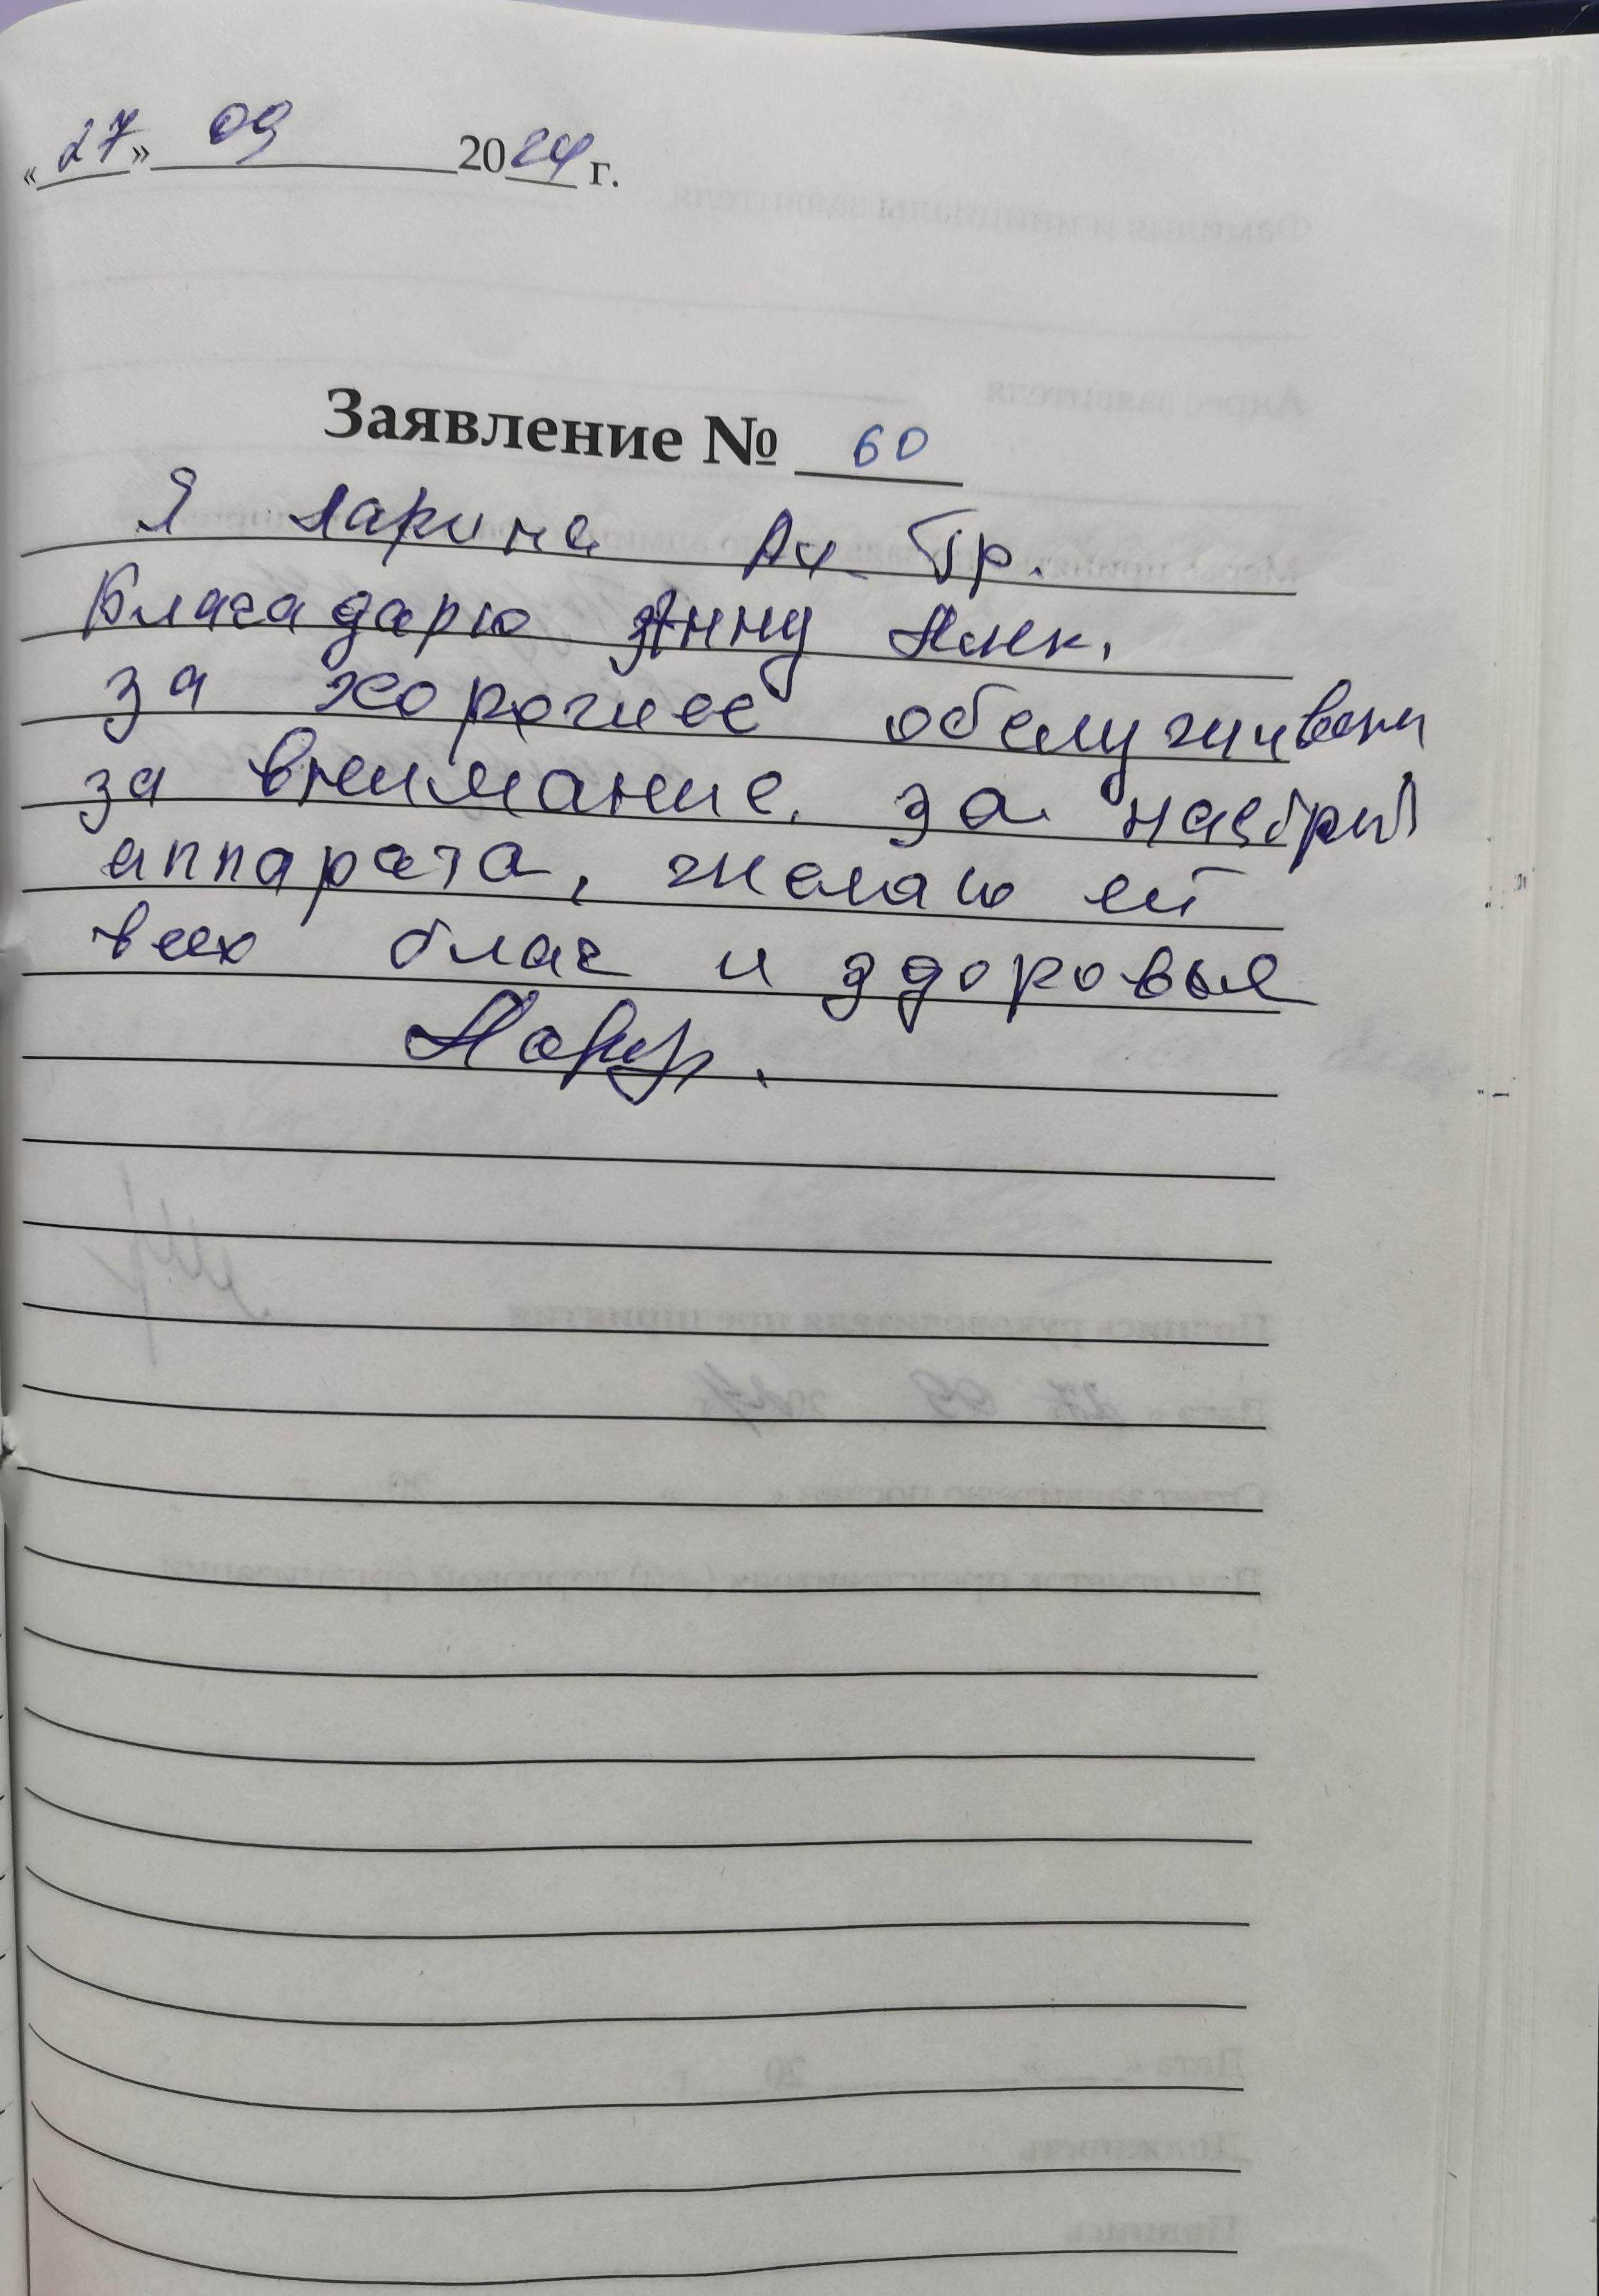 «27» 09 2024 г.
Заявление № 60
Я Ларина Ан. Гр.
Благадарю Анну Ник.
за хорошее обслуживани
за внимание. за настрой
аппарата, желаю ей
всех благ и здоровья